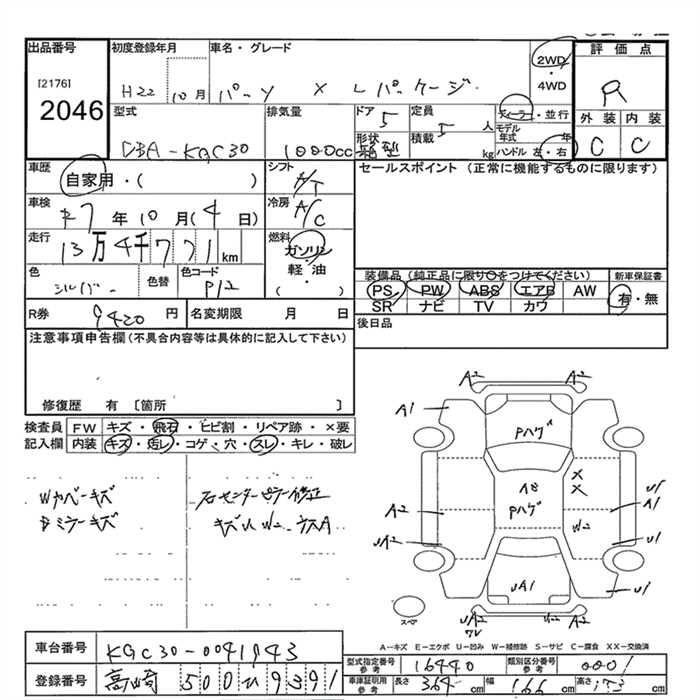 出品番号 初度登録年月 車名・グレード 評価点
[2176] H22 10月 パッソ X Lパッケージ 2WD・4WD R
2046
型式 排気量 ドア 定員 ディーラー・並行 外装 内装
DBA-KGC30 1000cc 5 5人 モデル年式 年 C C
形状 箱型 積載 kg ハンドル 左・右
車歴 シフト セールスポイント (正常に機能するものに限ります)
自家用・( ) A/T
車検 冷房
R7年10月(4日) A/C
走行 燃料
13万4千771km ガソリン
軽・油
( )
色 色替 色コード 装備品(純正品に限り○をつけてください) 新車保証書
シルバー P12 PS PW ABS エアB AW 有・無
SR ナビ TV カワ
R券 9420円 名変期限 月 日 後日品
注意事項申告欄(不具合内容等は具体的に記入して下さい)
修復歴 有 〔箇所 〕
検査員 FW キズ・飛石・ヒビ割・リペア跡・×要
記入欄 内装 キズ・汚レ・コゲ・穴・スレ・キレ・破レ
Wカバーキズ 右センターピラー修正
Bミラーキズ キズU W2
A2 A2
A1 Pハゲ
A2 Pハゲ × × A1
UA2 W2 U1
UA1 U1
スペア UA2 A2
A-キズ E-エクボ U-凹み W-補修跡 S-サビ C-腐食 XX-交換済
車台番号 KGC30-0041943 型式指定番号 参考 16440 類別区分番号 参考 0001
登録番号 高崎 500 ひ 9391 車庫証明用 参考 長さ 364cm 幅 166cm 高さ 153cm